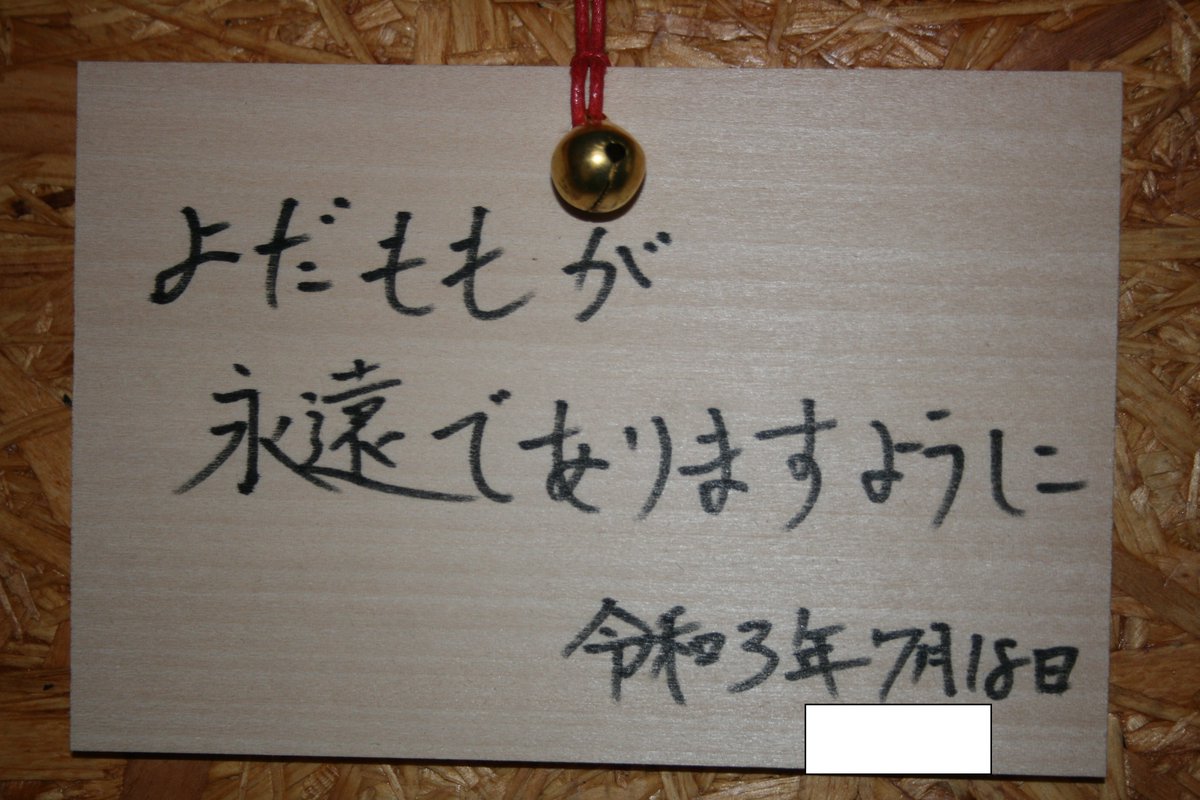 よだももが
永遠でありますように
令和3年7月18日